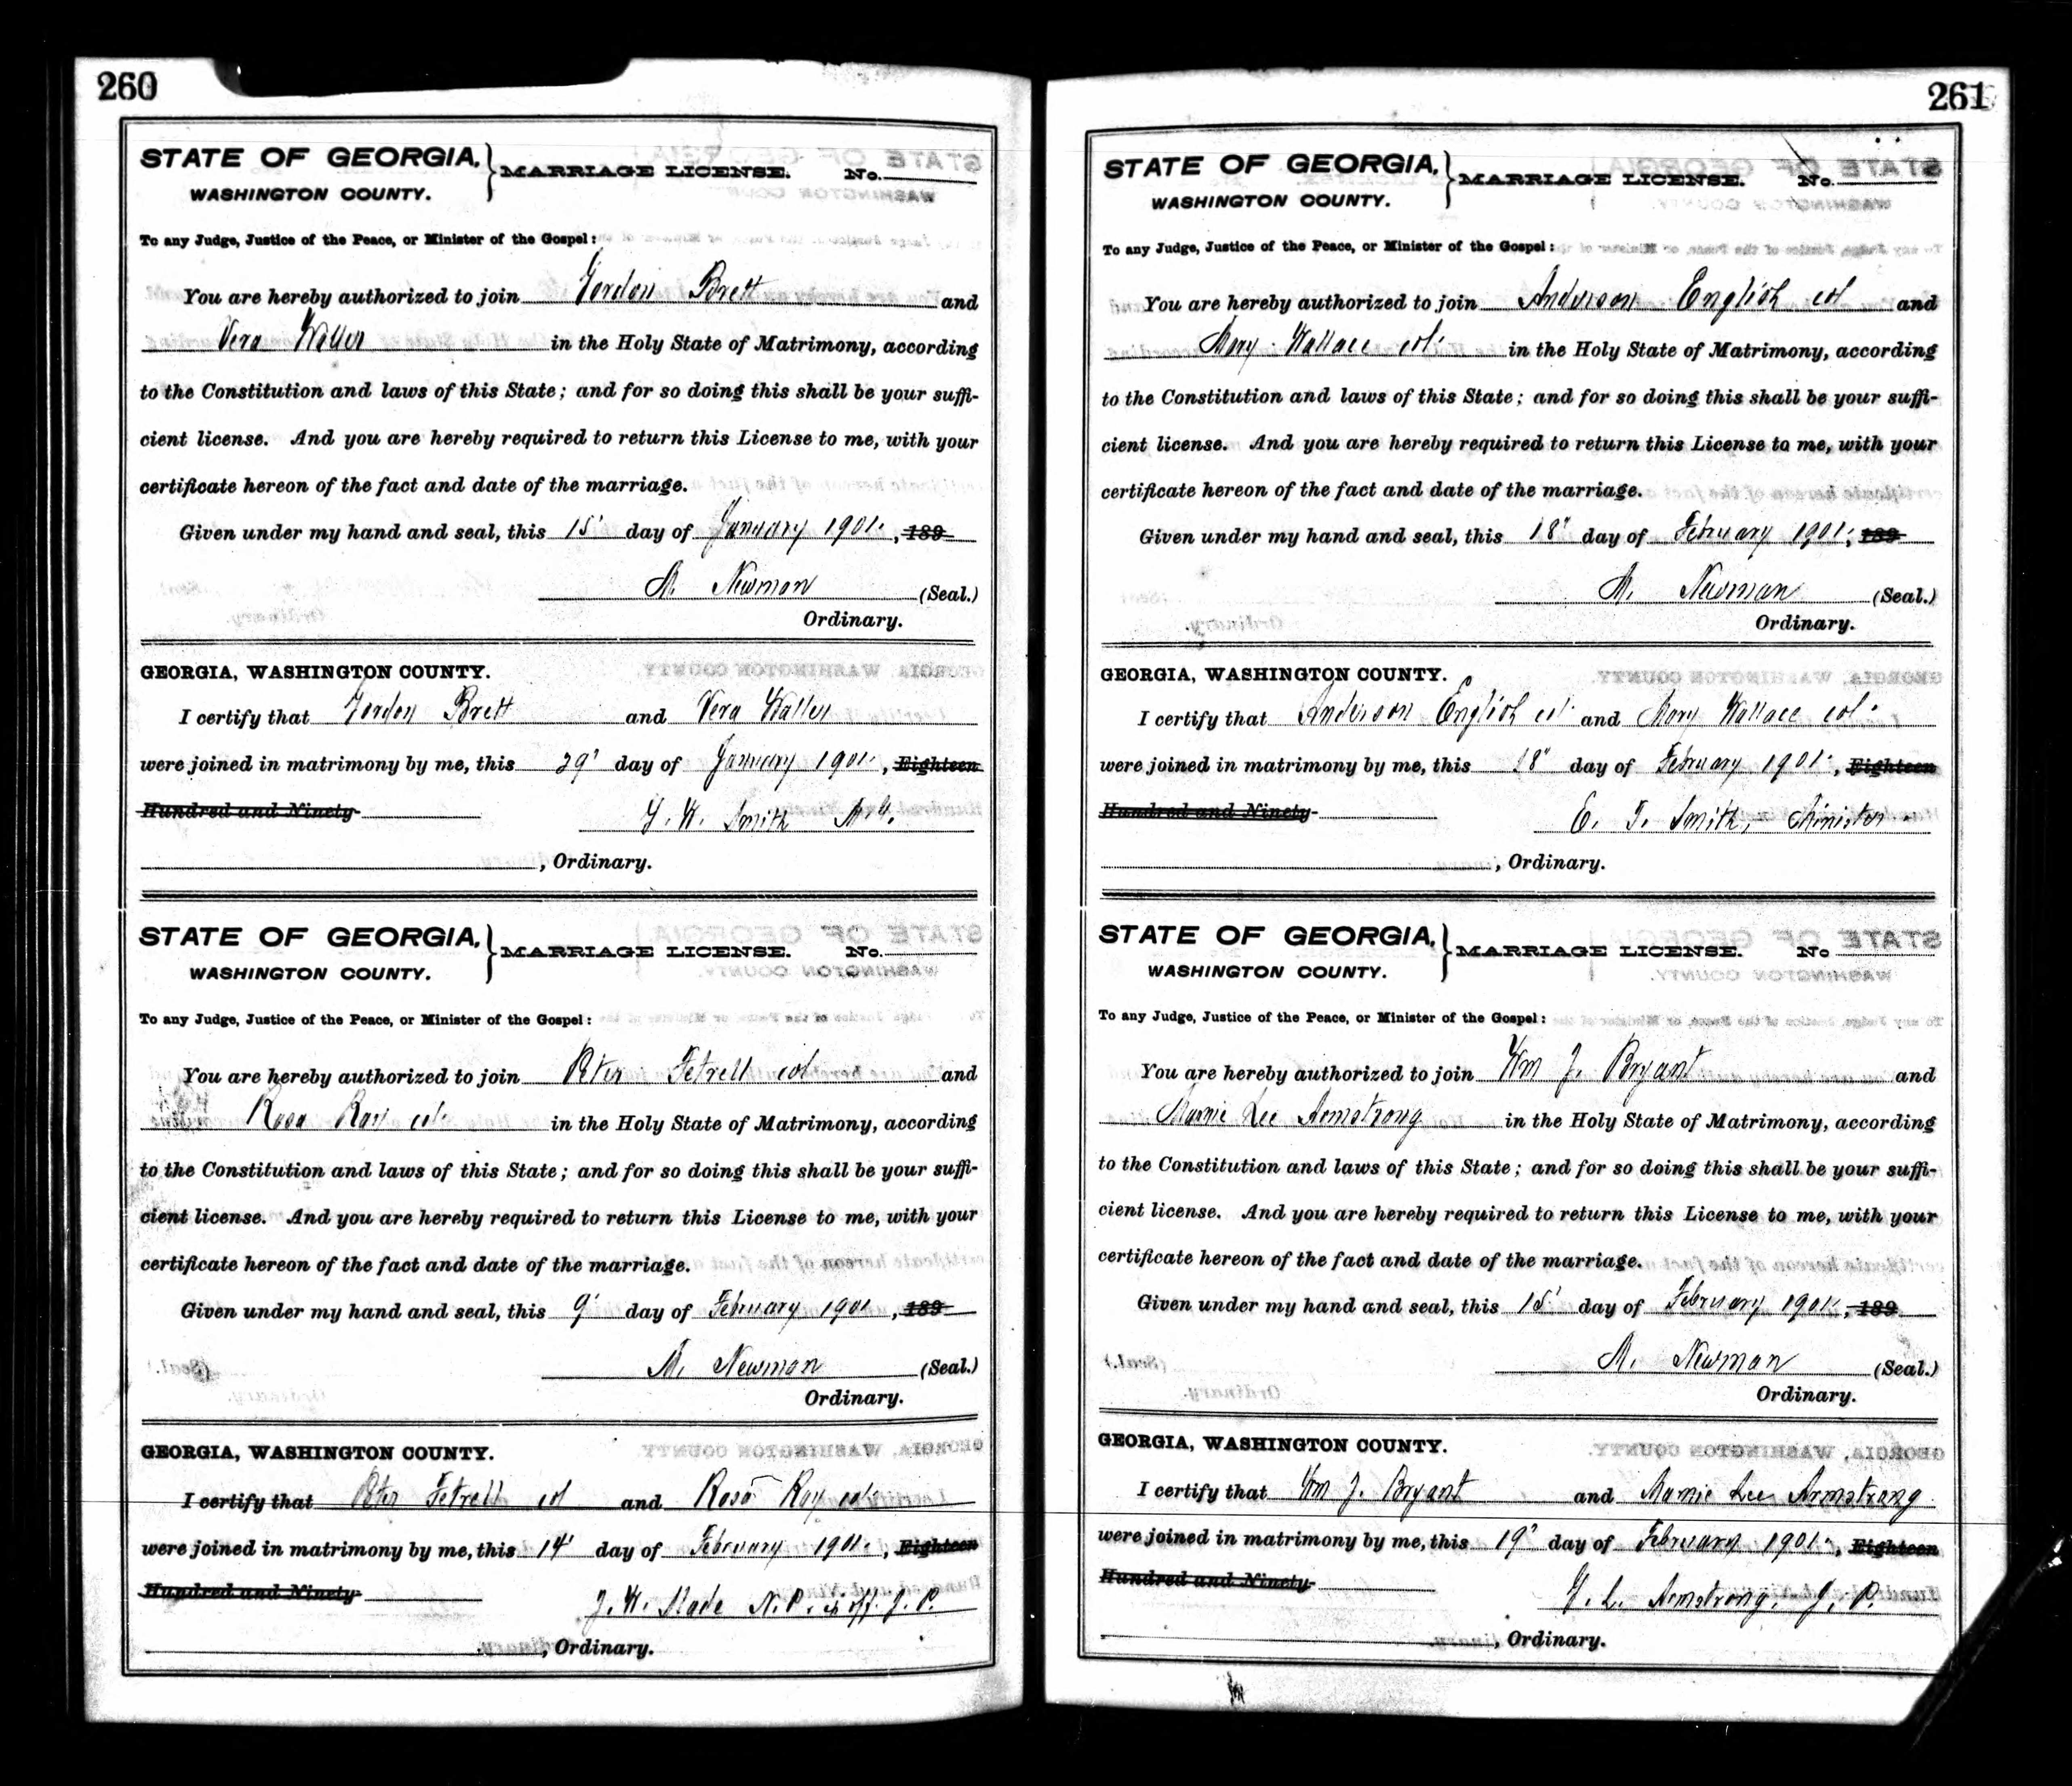 260
STATE OF GEORGIA, } MARRIAGE LICENSE. No.
WASHINGTON COUNTY.
To any Judge, Justice of the Peace, or Minister of the Gospel:
You are hereby authorized to join Gordon Brett and
Vera Waller in the Holy State of Matrimony, according
to the Constitution and laws of this State; and for so doing this shall be your suffi-
cient license. And you are hereby required to return this License to me, with your
certificate hereon of the fact and date of the marriage.
Given under my hand and seal, this 15' day of January 1901, 189
M. Newman (Seal.)
Ordinary.
GEORGIA, WASHINGTON COUNTY.
I certify that Gordon Brett and Vera Waller
were joined in matrimony by me, this 29' day of January 1901, Eighteen
Hundred and Ninety G. W. Smith M.G.
, Ordinary.
STATE OF GEORGIA, } MARRIAGE LICENSE. No.
WASHINGTON COUNTY.
To any Judge, Justice of the Peace, or Minister of the Gospel:
You are hereby authorized to join Peter Fetrell col and
Rosa Ray col in the Holy State of Matrimony, according
to the Constitution and laws of this State; and for so doing this shall be your suffi-
cient license. And you are hereby required to return this License to me, with your
certificate hereon of the fact and date of the marriage.
Given under my hand and seal, this 9' day of February 1901, 189
M. Newman (Seal.)
Ordinary.
GEORGIA, WASHINGTON COUNTY.
I certify that Peter Fetrell col and Rosa Ray col
were joined in matrimony by me, this 14' day of February 1901, Eighteen
Hundred and Ninety J. W. Slade N. P. & J. P.
, Ordinary.
261
STATE OF GEORGIA, } MARRIAGE LICENSE. No.
WASHINGTON COUNTY.
To any Judge, Justice of the Peace, or Minister of the Gospel:
You are hereby authorized to join Anderson English col and
Mary Wallace col in the Holy State of Matrimony, according
to the Constitution and laws of this State; and for so doing this shall be your suffi-
cient license. And you are hereby required to return this License to me, with your
certificate hereon of the fact and date of the marriage.
Given under my hand and seal, this 18" day of February 1901, 189
M. Newman (Seal.)
Ordinary.
GEORGIA, WASHINGTON COUNTY.
I certify that Anderson English col and Mary Wallace col
were joined in matrimony by me, this 18" day of February 1901, Eighteen
Hundred and Ninety E. T. Smith, Minister
, Ordinary.
STATE OF GEORGIA, } MARRIAGE LICENSE. No
WASHINGTON COUNTY.
To any Judge, Justice of the Peace, or Minister of the Gospel:
You are hereby authorized to join Wm J. Bryant and
Mamie Lee Armstrong in the Holy State of Matrimony, according
to the Constitution and laws of this State; and for so doing this shall be your suffi-
cient license. And you are hereby required to return this License to me, with your
certificate hereon of the fact and date of the marriage.
Given under my hand and seal, this 15' day of February 1901, 189
M. Newman (Seal.)
Ordinary.
GEORGIA, WASHINGTON COUNTY.
I certify that Wm J. Bryant and Mamie Lee Armstrong
were joined in matrimony by me, this 19' day of February 1901, Eighteen
Hundred and Ninety L. Armstrong, J. P.
, Ordinary.